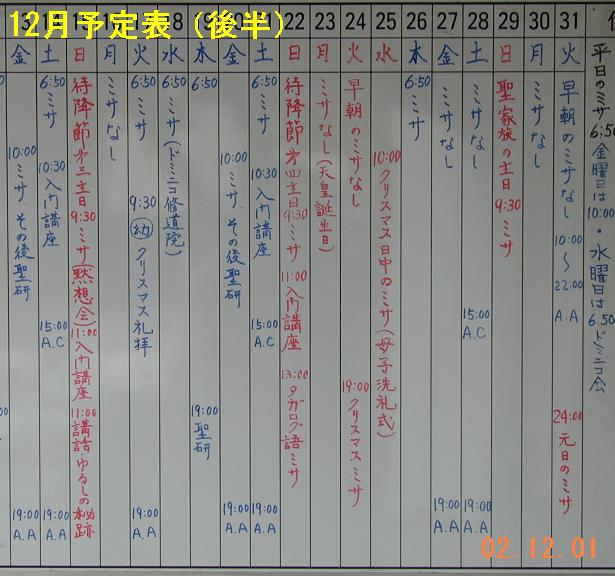 12月予定表（後半）
18 19 20 21 22 23 24 25 26 27 28 29 30 31
金 土 日 月 火 水 木 金 土 日 月 火 水 木 金 土 日 月 火
10:00 ミサ その後聖研
19:00 A.A
6:50 ミサ
10:30 入門講座
15:00 A.C
19:00 A.A
待降節第三主日 9:30 ミサ(黙想会) 11:00 入門講座
11:00 講話・ゆるしの秘跡
ミサなし
6:50 ミサ
9:30 幼 クリスマス礼拝
19:00 A.A
6:50 ミサ(ドミニコ修道院)
6:50 ミサ
19:00 聖研
10:00 ミサ その後聖研
19:00 A.A
6:50 ミサ
10:30 入門講座
15:00 A.C
19:00 A.A
待降節第四主日 9:30 ミサ 11:00 入門講座 13:00 タガログ語ミサ
ミサなし(天皇誕生日)
早朝のミサなし
19:00 クリスマスミサ
10:00 クリスマス日中のミサ(母子洗礼式)
ミサなし
ミサなし
19:00 A.A
ミサなし
15:00 A.C
19:00 A.A
聖家族の主日 9:30 ミサ
ミサなし
早朝のミサなし
10:00～22:00 A.A
24:00 元日のミサ
平日のミサ 6:50 金曜日は10:00・水曜日は6.50ドミニコ会
02.12.01